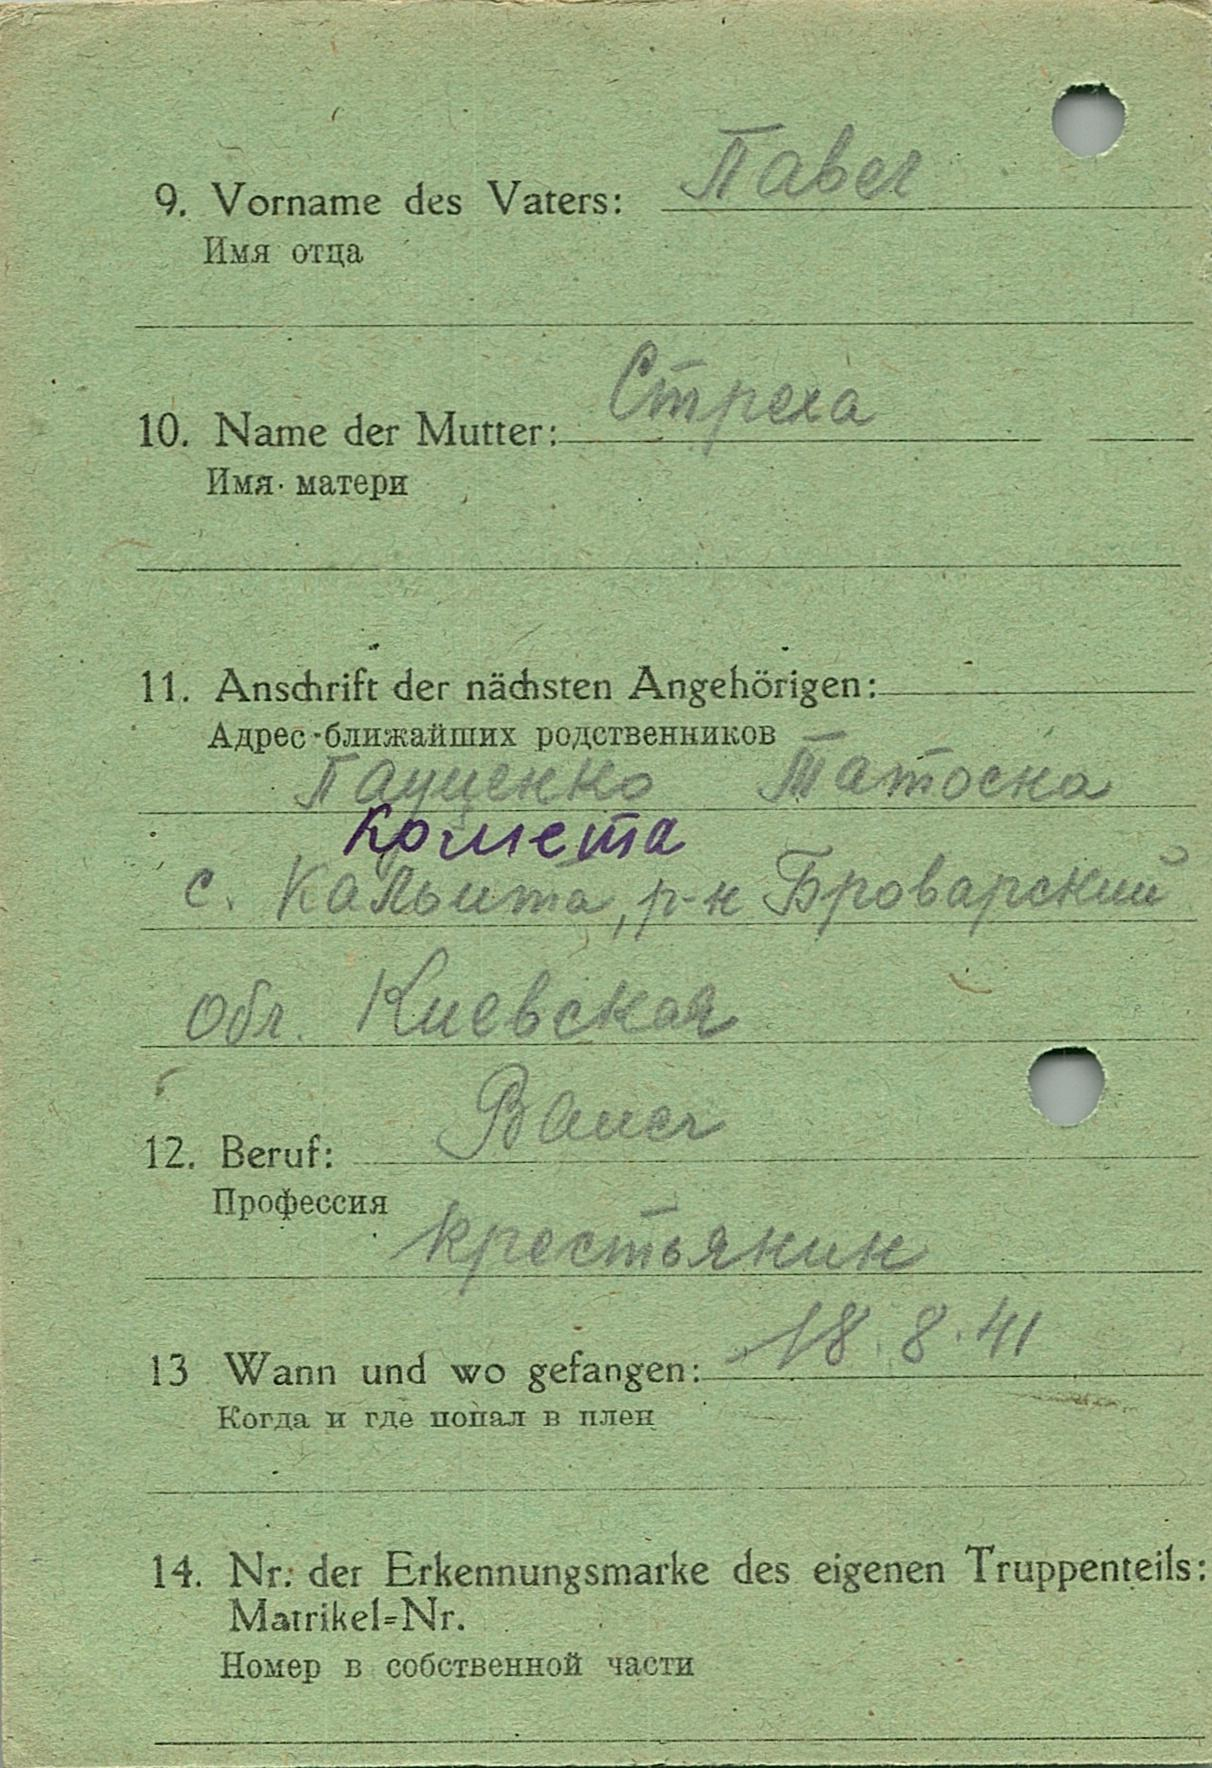 9. Vorname des Vaters: Павел
Имя отца
10. Name der Mutter: Стреха
Имя матери
11. Anschrift der nächsten Angehörigen:
Адрес ближайших родственников
Татоска
комета
с. Кальита, р-н Броварский
Обл. Киевская
12. Beruf: Bauer
Профессия
крестьянин
13 Wann und wo gefangen: 18.8.41
Когда и где попал в плен
14. Nr. der Erkennungsmarke des eigenen Truppenteils:
Matrikel=Nr.
Номер в собственной части